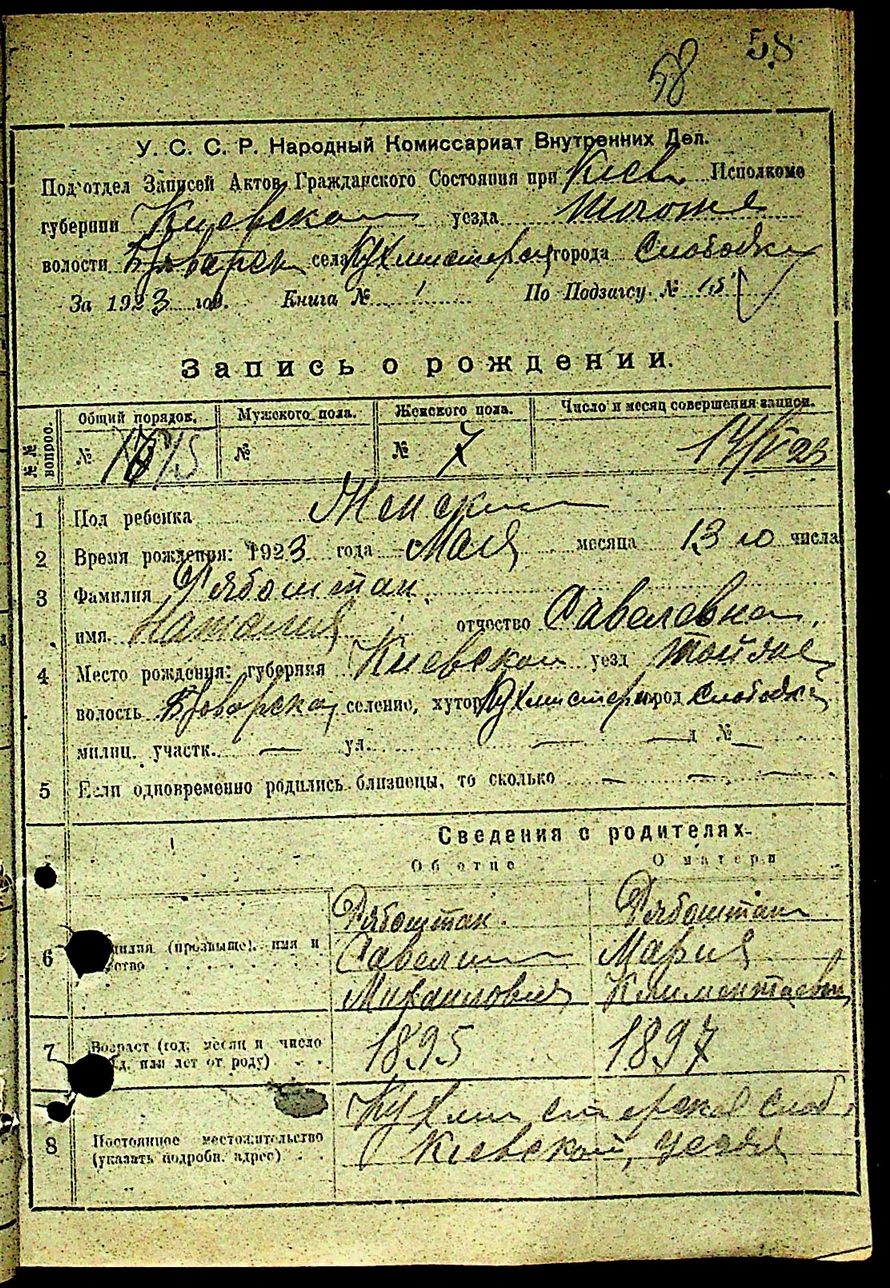 58 58
У. С. С. Р. Народный Комиссариат Внутренних Дел.
Под'отдел Записей Актов Гражданского Состояния при Киев Исполкоме
губернии Киевской уезда тогоже
волости Броварск села Кухмистерск города Слободка
За 1923 год. Книга № 1 По Подзагсу № 15
Запись о рождении.
№№ вопрос. Общий порядок. Мужского пола. Женского пола. Число и месяц совершения записи.
№ 15 № № 7 17/V 23
1 Пол ребенка Женский
2 Время рождения: 1923 года Мая месяца 13 го числа
3 Фамилия Рябоштан
имя Наталия отчество Савелевна
4 Место рождения: губерния Киевской уезд
волость Броварской, селение, хутор Кухмистерс город Слободка
милиц. участк. — ул. — — д № —
5 Если одновременно родились близнецы, то сколько — — — —
Сведения о родителях.
Об отце О матери
Рябоштан Рябоштан
6 (прозвище), имя и Савелий Мария
Михайлович Климентьевна
7 Возраст (год, месяц и число 1895 1897
или лет от роду)
Кухмистерская слоб.
8 Постоянное местожительство Киевской, уезда
(указать подробн. адрес)